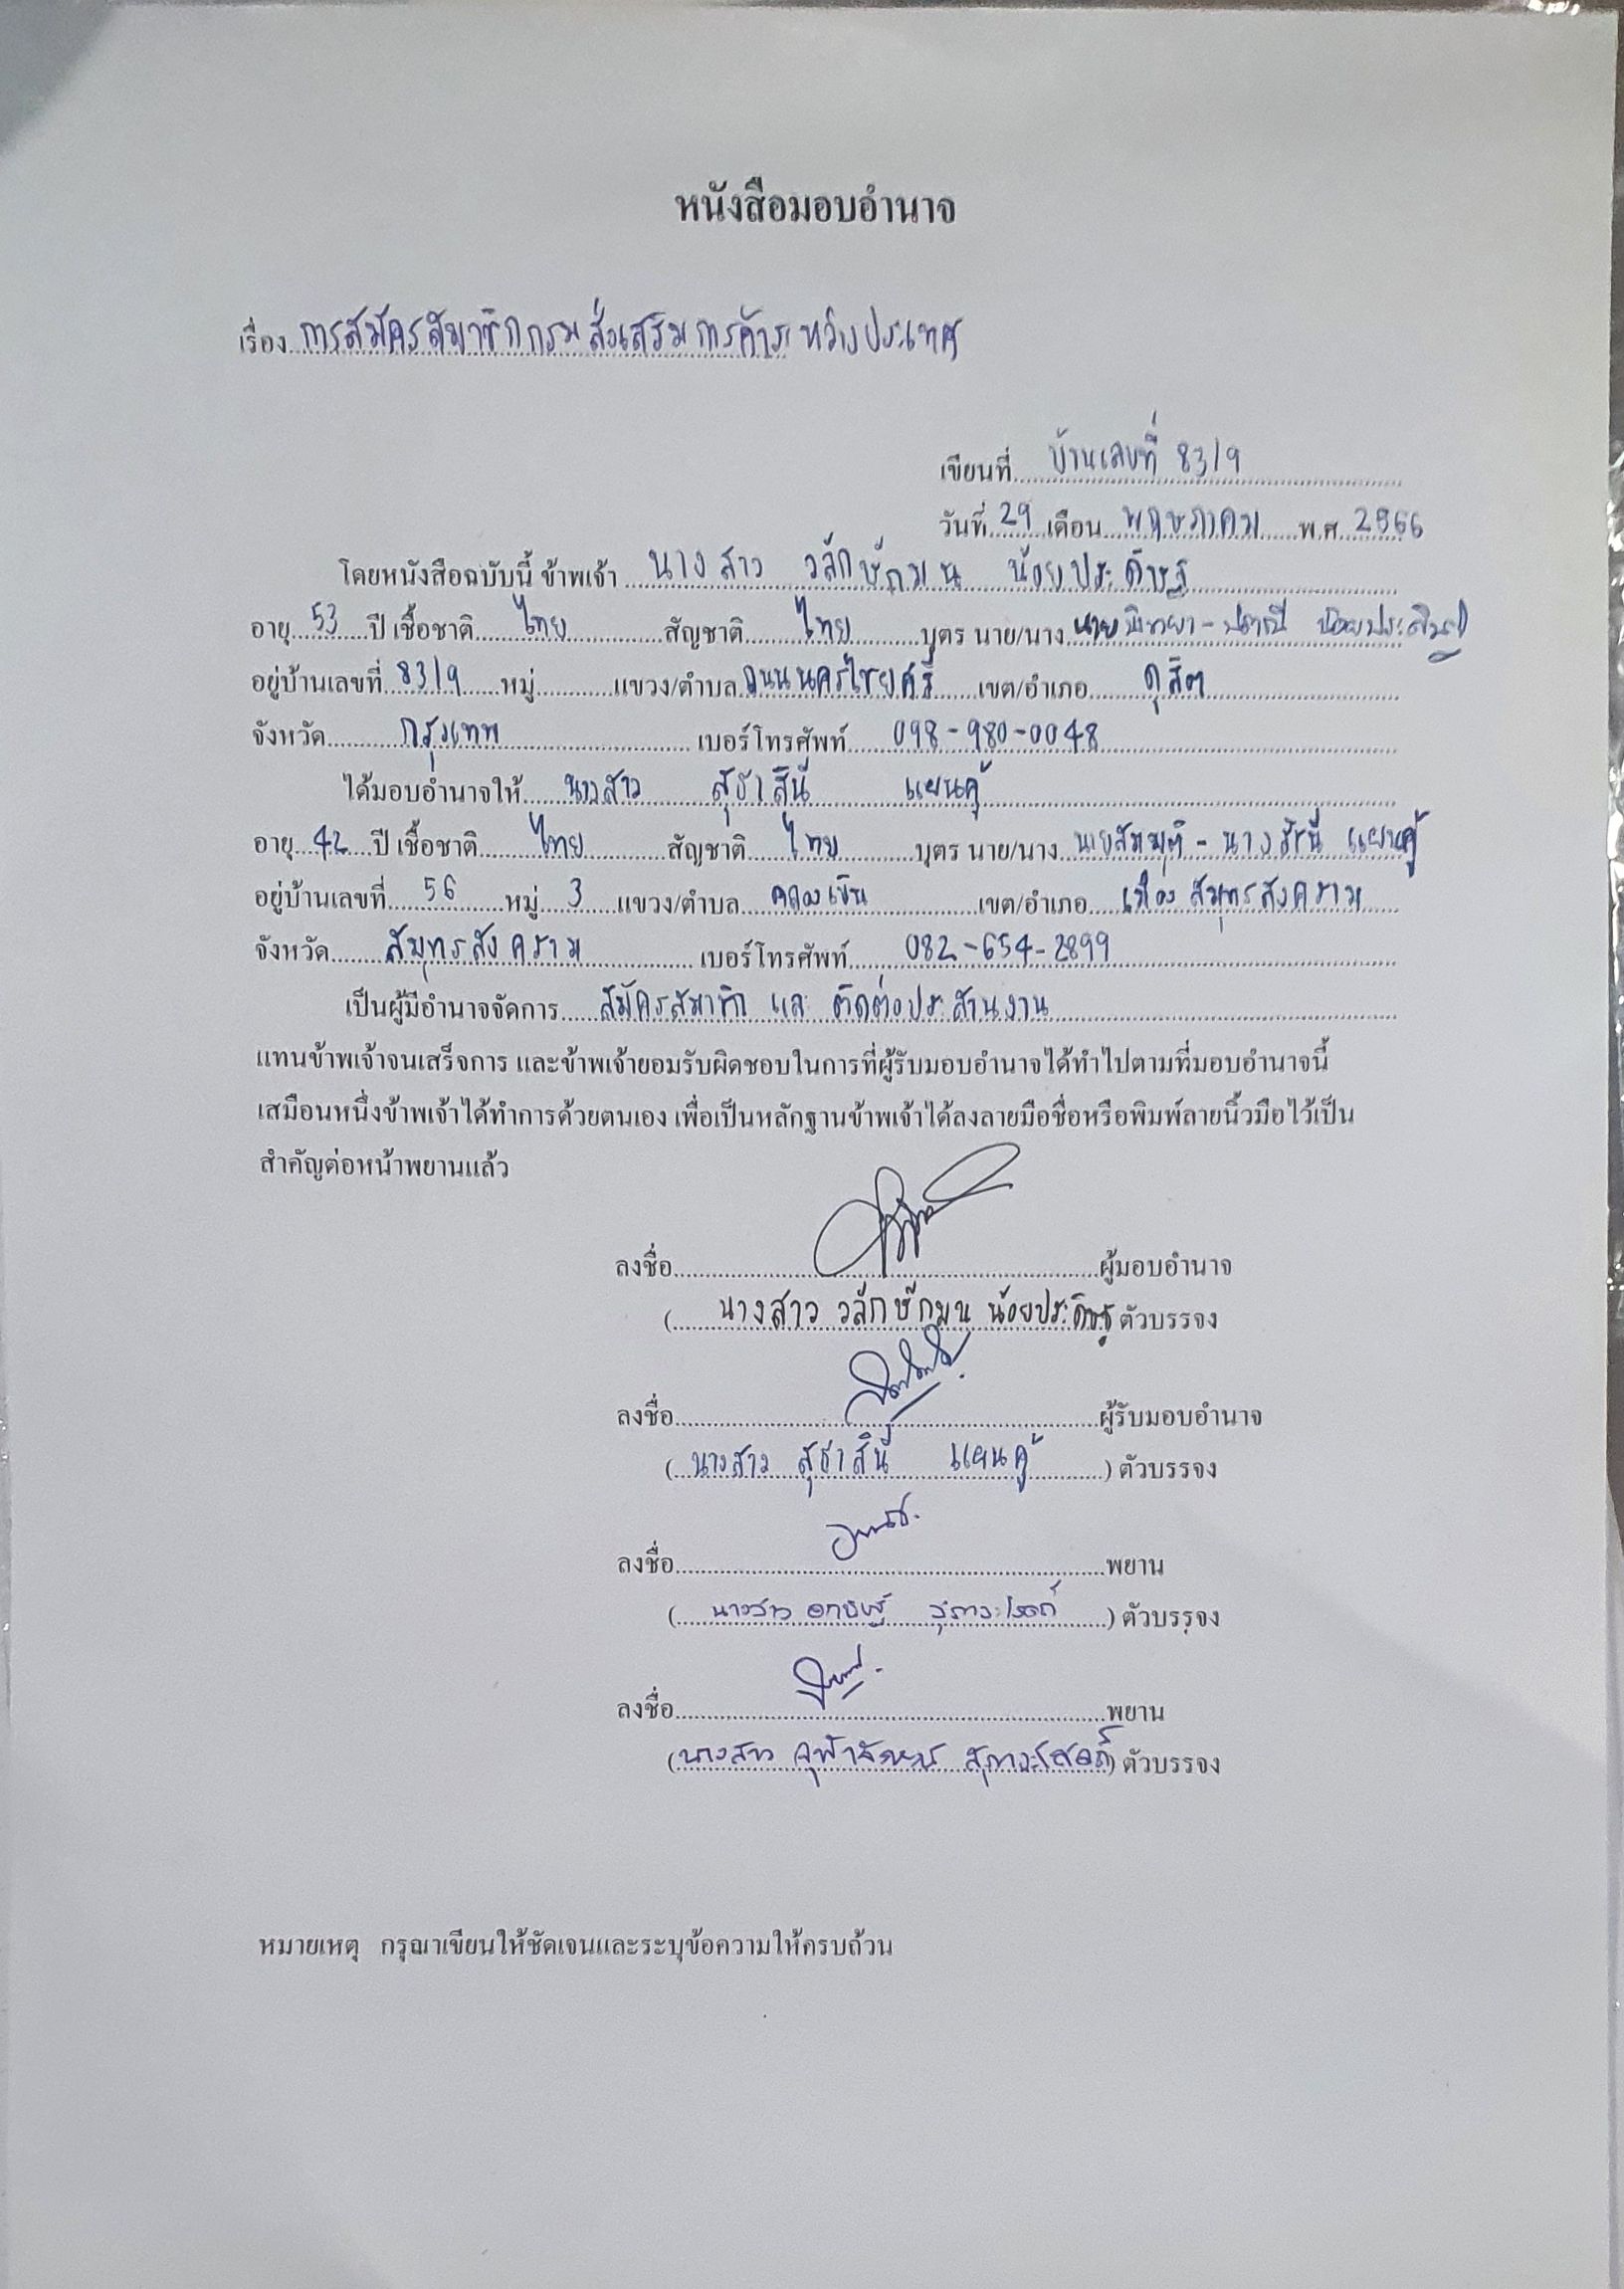 หนังสือมอบอำนาจ
เรื่อง การสมัครสมาชิกกรมส่งเสริมการค้าระหว่างประเทศ
เขียนที่ บ้านเลขที่ 83/9
วันที่ 29 เดือน พฤษภาคม พ.ศ. 2566
โดยหนังสือฉบับนี้ ข้าพเจ้า นางสาว วลักษ์กมน น้อยประดิษฐ์
อายุ 53 ปี เชื้อชาติ ไทย สัญชาติ ไทย บุตร นาย/นาง นาย น้อยประดิษฐ์
อยู่บ้านเลขที่ 83/9 หมู่ แขวง/ตำบล ถนนนครไชยศรี เขต/อำเภอ ดุสิต
จังหวัด กรุงเทพ เบอร์โทรศัพท์ 098-980-0048
ได้มอบอำนาจให้ นางสาว สุธาสินี แผนคู้
อายุ 42 ปี เชื้อชาติ ไทย สัญชาติ ไทย บุตร นาย/นาง นายสมมุติ - นางรัชนี แผนคู้
อยู่บ้านเลขที่ 56 หมู่ 3 แขวง/ตำบล คลองเขิน เขต/อำเภอ เมืองสมุทรสงคราม
จังหวัด สมุทรสงคราม เบอร์โทรศัพท์ 082-654-2899
เป็นผู้มีอำนาจจัดการ สมัครสมาชิก และ ติดต่อประสานงาน
แทนข้าพเจ้าจนเสร็จการ และข้าพเจ้ายอมรับผิดชอบในการที่ผู้รับมอบอำนาจได้ทำไปตามที่มอบอำนาจนี้
เสมือนหนึ่งข้าพเจ้าได้ทำการด้วยตนเอง เพื่อเป็นหลักฐานข้าพเจ้าได้ลงลายมือชื่อหรือพิมพ์ลายนิ้วมือไว้เป็น
สำคัญต่อหน้าพยานแล้ว
ลงชื่อ ผู้มอบอำนาจ
( นางสาว วลักษ์กมน น้อยประดิษฐ์ ตัวบรรจง
ลงชื่อ ผู้รับมอบอำนาจ
( นางสาว สุธาสินี แผนคู้ ) ตัวบรรจง
ลงชื่อ พยาน
( นางสาว ) ตัวบรรจง
ลงชื่อ พยาน
( นางสาว ) ตัวบรรจง
หมายเหตุ กรุณาเขียนให้ชัดเจนและระบุข้อความให้ครบถ้วน